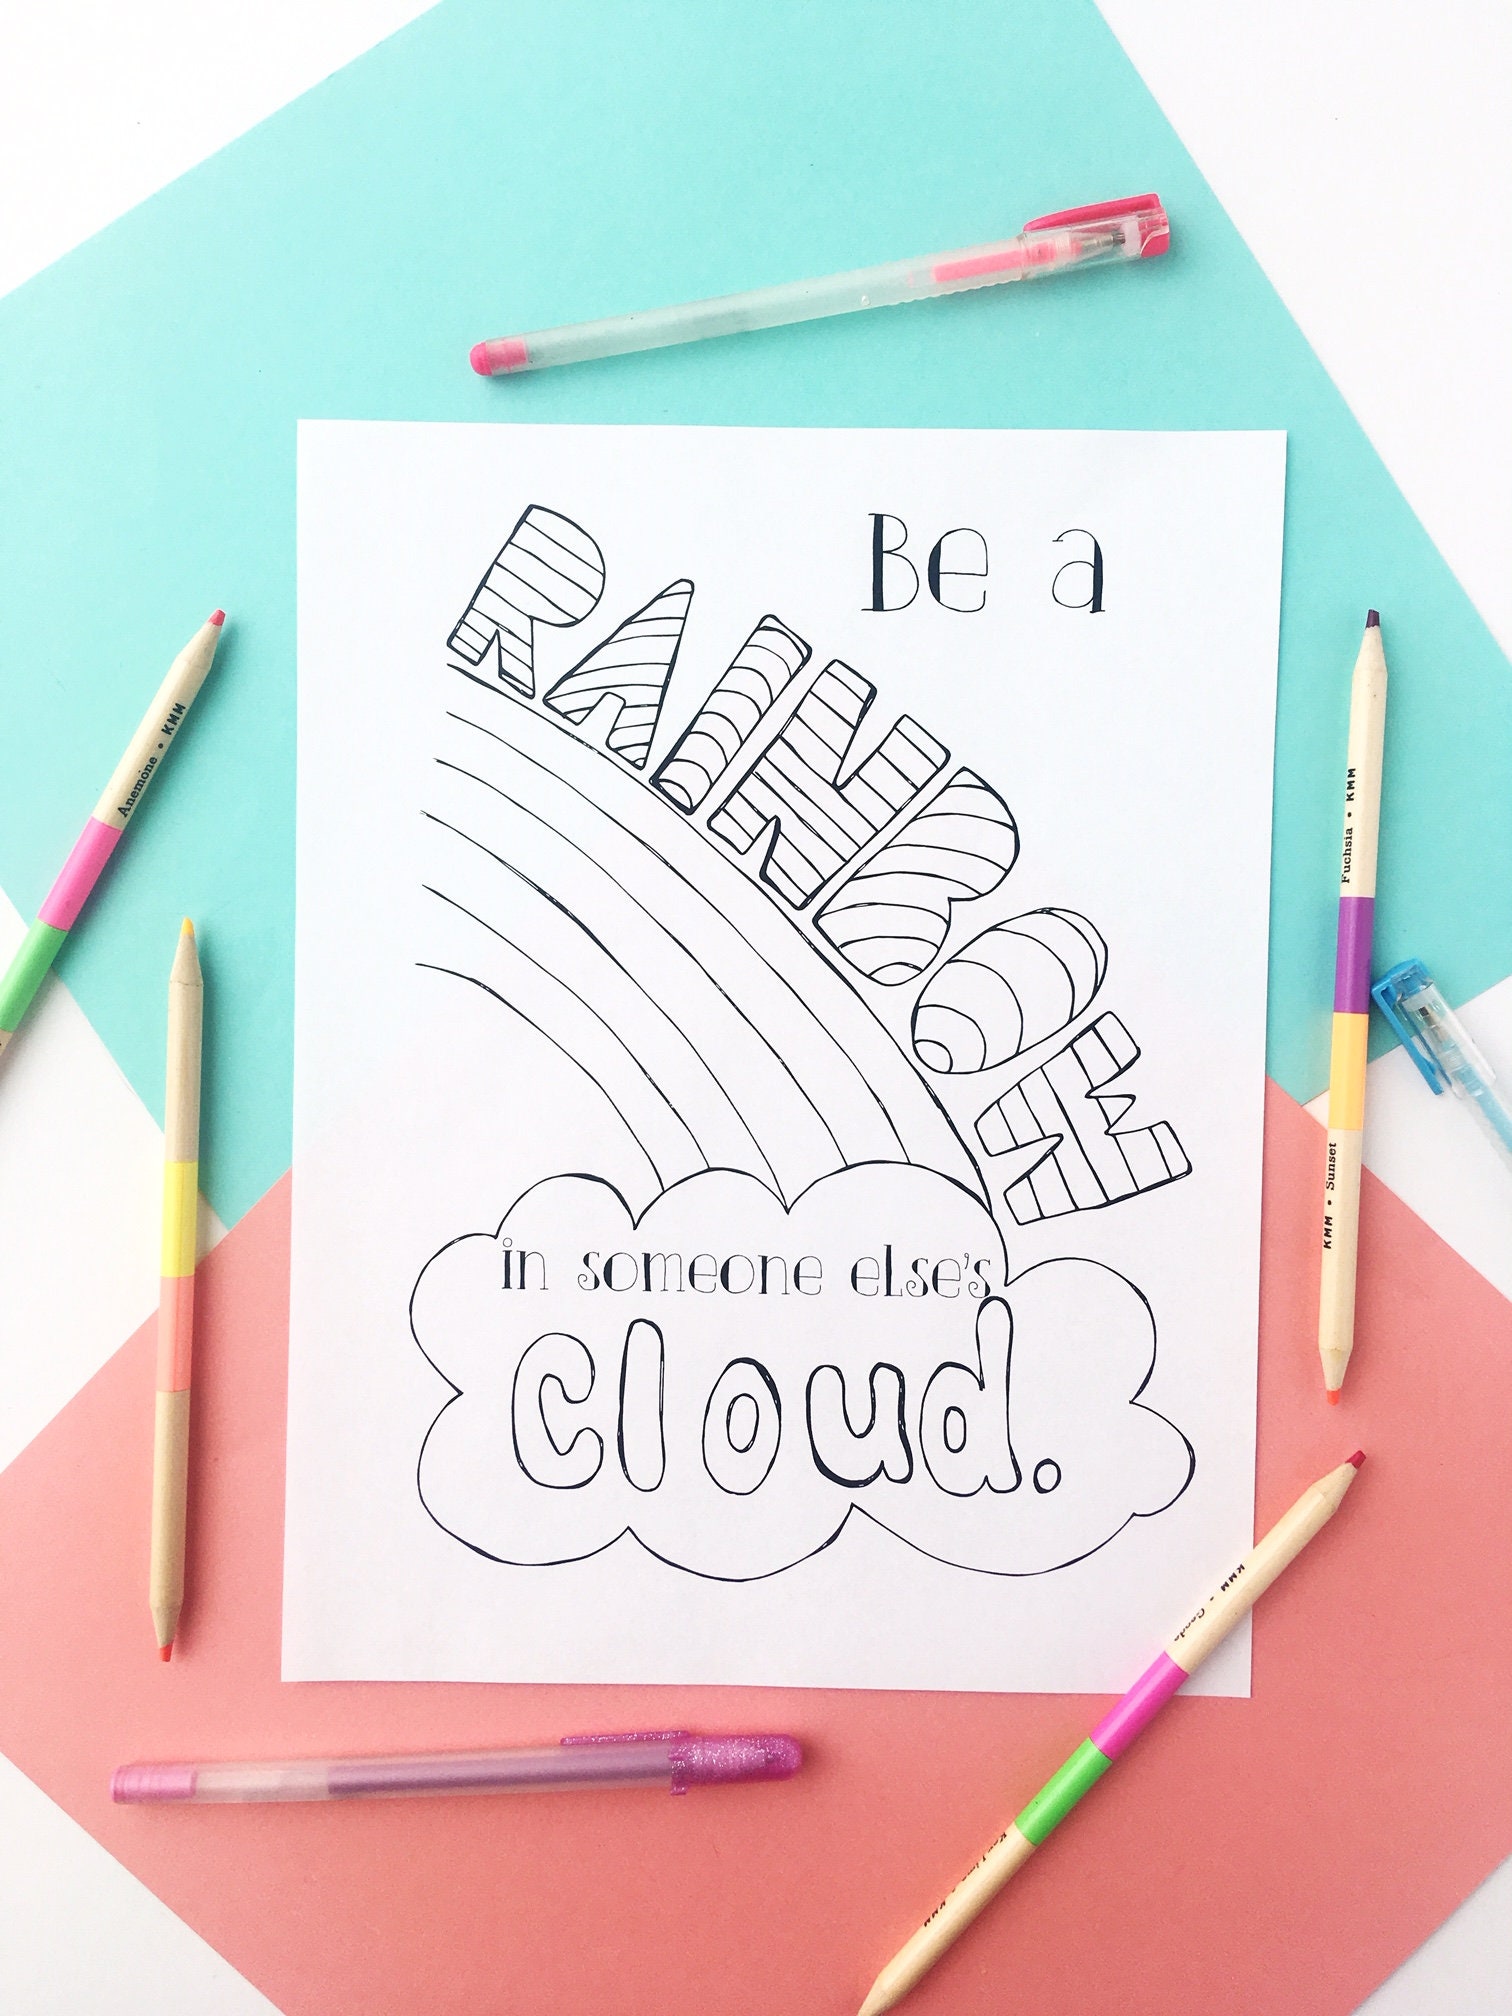 Be a
RAINBOW
in someone else's
Cloud.
Anemone • KMM
Fuchsia • KMM
KMM • Sunset
KMM •
KMM